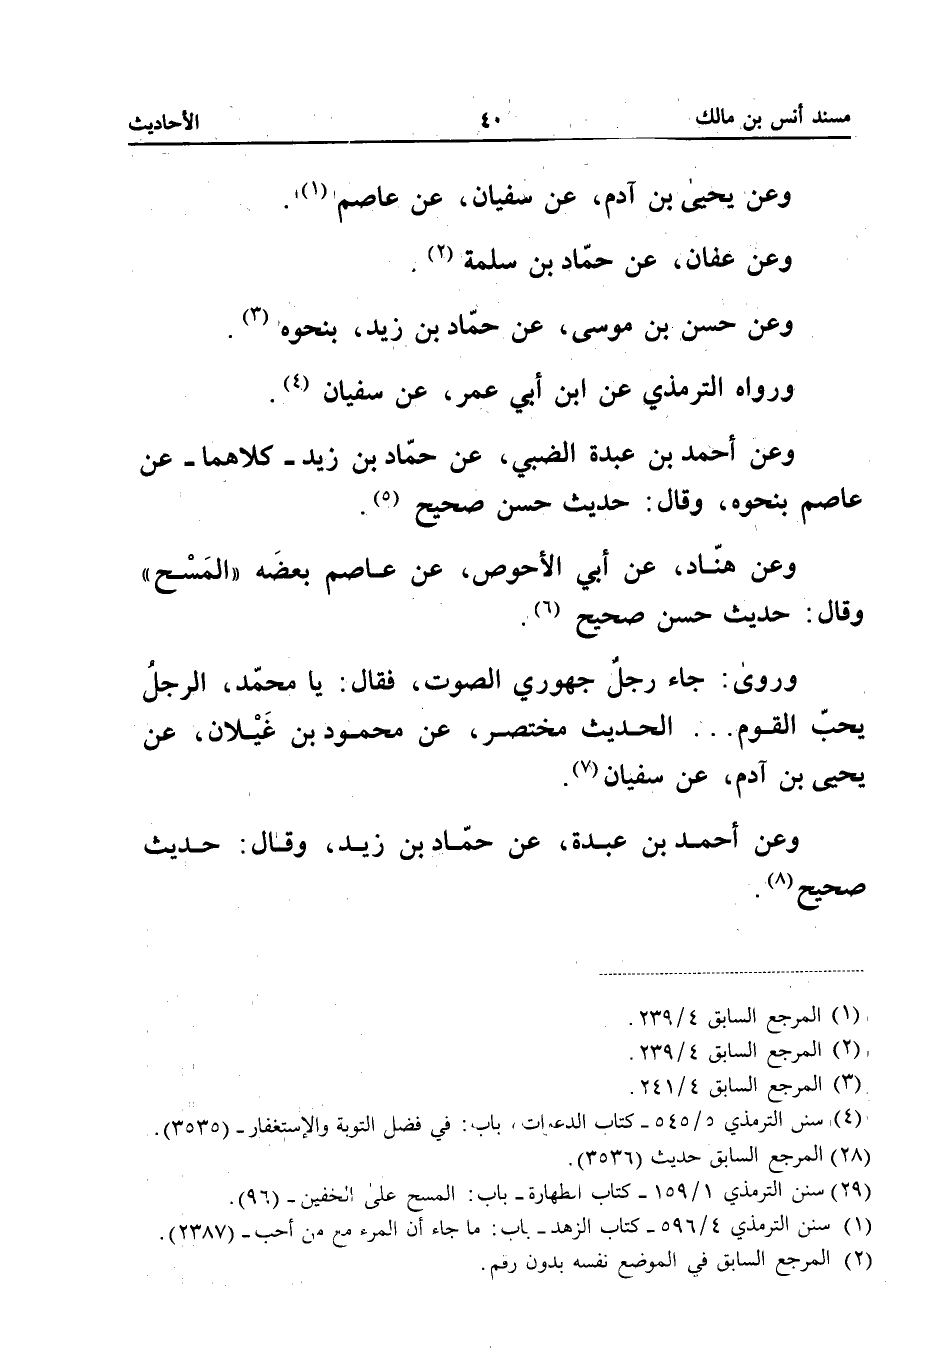 مسند أنس بن مالك ٤٠ الأحاديث
وعن يحيىٰ بن آدم، عن سفيان، عن عاصم (١).
وعن عفان، عن حمّاد بن سلمة (٢).
وعن حسن بن موسى، عن حمّاد بن زيد، بنحوه (٣).
ورواه الترمذي عن ابن أبي عمر، عن سفيان (٤).
وعن أحمد بن عبدة الضبي، عن حمّاد بن زيد ـ كلاهما ـ عن
عاصم بنحوه، وقال: حديث حسن صحيح (٥).
وعن هنّاد، عن أبي الأحوص، عن عاصم بعضَه «المَسْح»
وقال: حديث حسن صحيح (٦).
وروىٰ: جاء رجلٌ جهوري الصوت، فقال: يا محمّد، الرجلُ
يحبّ القوم... الحديث مختصر، عن محمود بن غَيْلان، عن
يحيى بن آدم، عن سفيان (٧).
وعن أحمد بن عبدة، عن حمّاد بن زيد، وقال: حديث
صحيح (٨).
(١) المرجع السابق ٢٣٩/٤.
(٢) المرجع السابق ٢٣٩/٤.
(٣) المرجع السابق ٢٤١/٤.
(٤) سنن الترمذي ٥٤٥/٥ ـ كتاب الدعوات، باب: في فضل التوبة والإستغفار ـ (٣٥٣٥).
(٢٨) المرجع السابق حديث (٣٥٣٦).
(٢٩) سنن الترمذي ١٥٩/١ ـ كتاب الطهارة ـ باب: المسح علىٰ الخفين ـ (٩٦).
(١) سنن الترمذي ٥٩٦/٤ ـ كتاب الزهد ـ باب: ما جاء أن المرء مع من أحب ـ (٢٣٨٧).
(٢) المرجع السابق في الموضع نفسه بدون رقم.